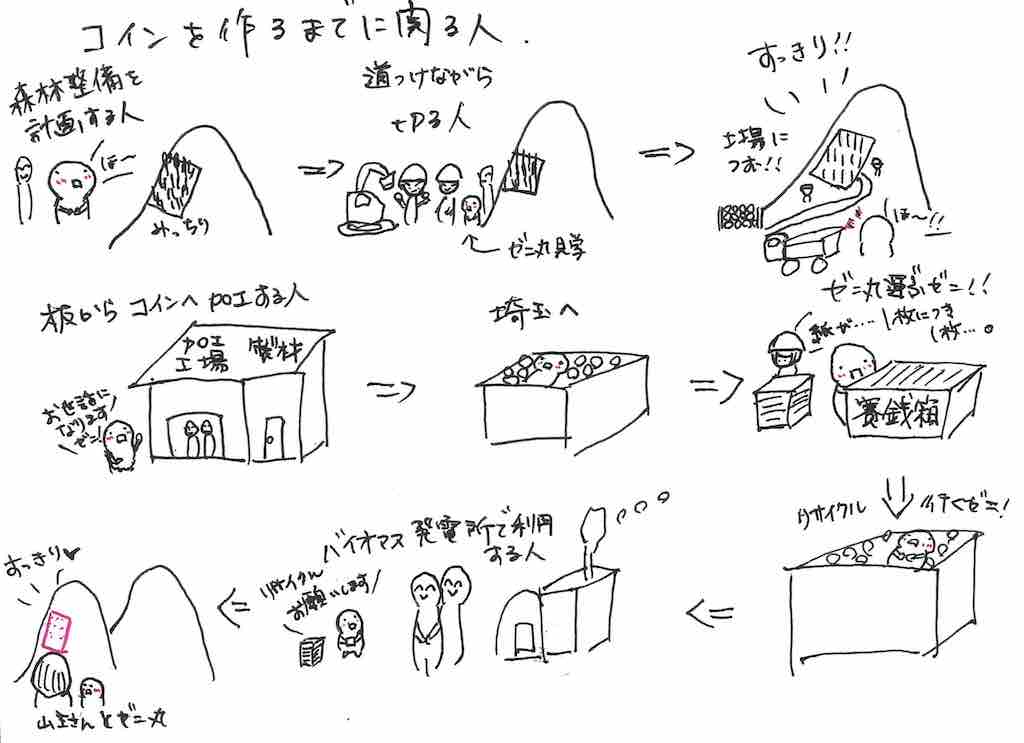 コインを作るまでに関る人.
森林整備を
計画する人
ほ〜
みっちり
道つけながら
セPる人
ゼニ丸見学
すっきり!!
工場に
つむ!!
ほ〜!!
板から コインへ 加工する人
加工
工場
製材
お世話に
なります
ゼニ!
埼玉へ
ゼニ丸運ぶゼニ!!
紙が....1枚につき
1枚...。
賽銭箱
リサイクル
行くゼニ!
バイオマス発電所で利用
する人
リサイクル
お願いします
すっきり♥
山主さんとゼニ丸